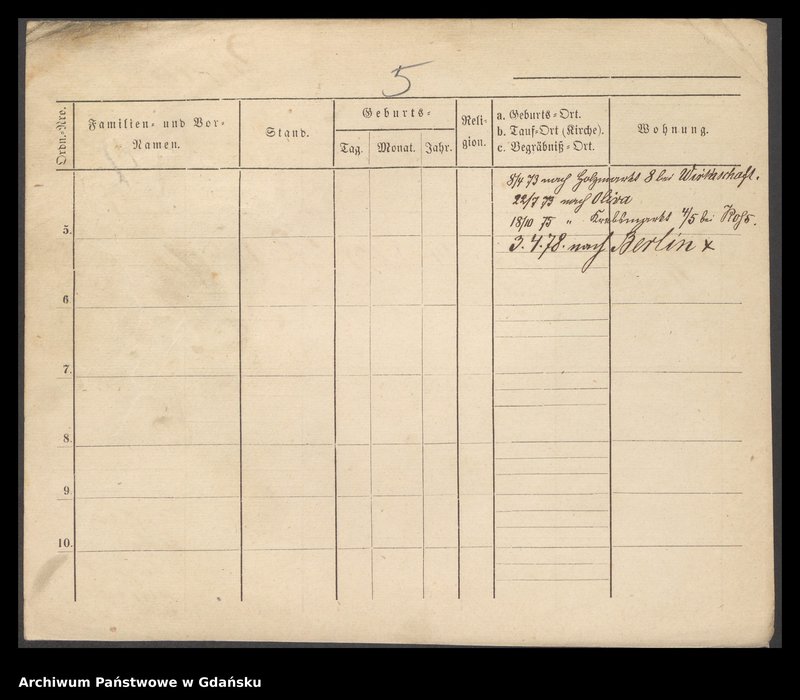 5
Ordn.-Nro.
Familien- und Vor-
Namen.
Stand.
Geburts-
Tag.
Monat.
Jahr.
Reli-
gion.
a. Geburts-Ort.
b. Tauf-Ort (Kirche).
c. Begräbniß-Ort.
Wohnung.
8/4 73 nach Holzmarkt 8 bei Wirthschaft.
22/7 73 nach Oliva
18/10 75 " Krebsmarkt 4/5 bei
5.
3.4.78. nach Berlin x
6.
7.
8.
9.
10.
Archiwum Państwowe w Gdańsku